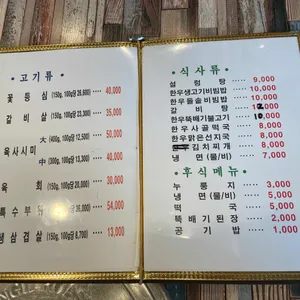 · 고기류 ·
꽃 등 심 (150g, 100g당 26,600) ···· 40,000
갈 비 살 (150g, 100g당 23,300) ···· 35,000
大 (400g, 100g당 12,500) ···· 50,000
육사시미
中 (300g, 100g당 13,300) ···· 40,000
육 회 (150g, 100g당 20,000) ···· 30,000
특수부 ···· 54,000
삼겹살 (150g, 100g당 8,700) ···· 13,000
· 식사류 ·
설 렁 탕 ···· 9,000
한우생고기비빔밥 ···· 10,000
한우돌솥비빔밥 ···· 10,000
갈 비 탕 ···· 12,000
한우뚝배기불고기 ···· 10,000
한우사골떡국 ···· 8,000
한우맑은선지국 ···· 8,000
김치찌개 ···· 8,000
냉 면 (물/비) ···· 7,000
· 후식메뉴 ·
누 룽 지 ···· 3,000
냉 면 (물/비) ···· 5,000
떡 국 ···· 5,000
뚝배기된장 ···· 2,000
공 기 밥 ···· 1,000